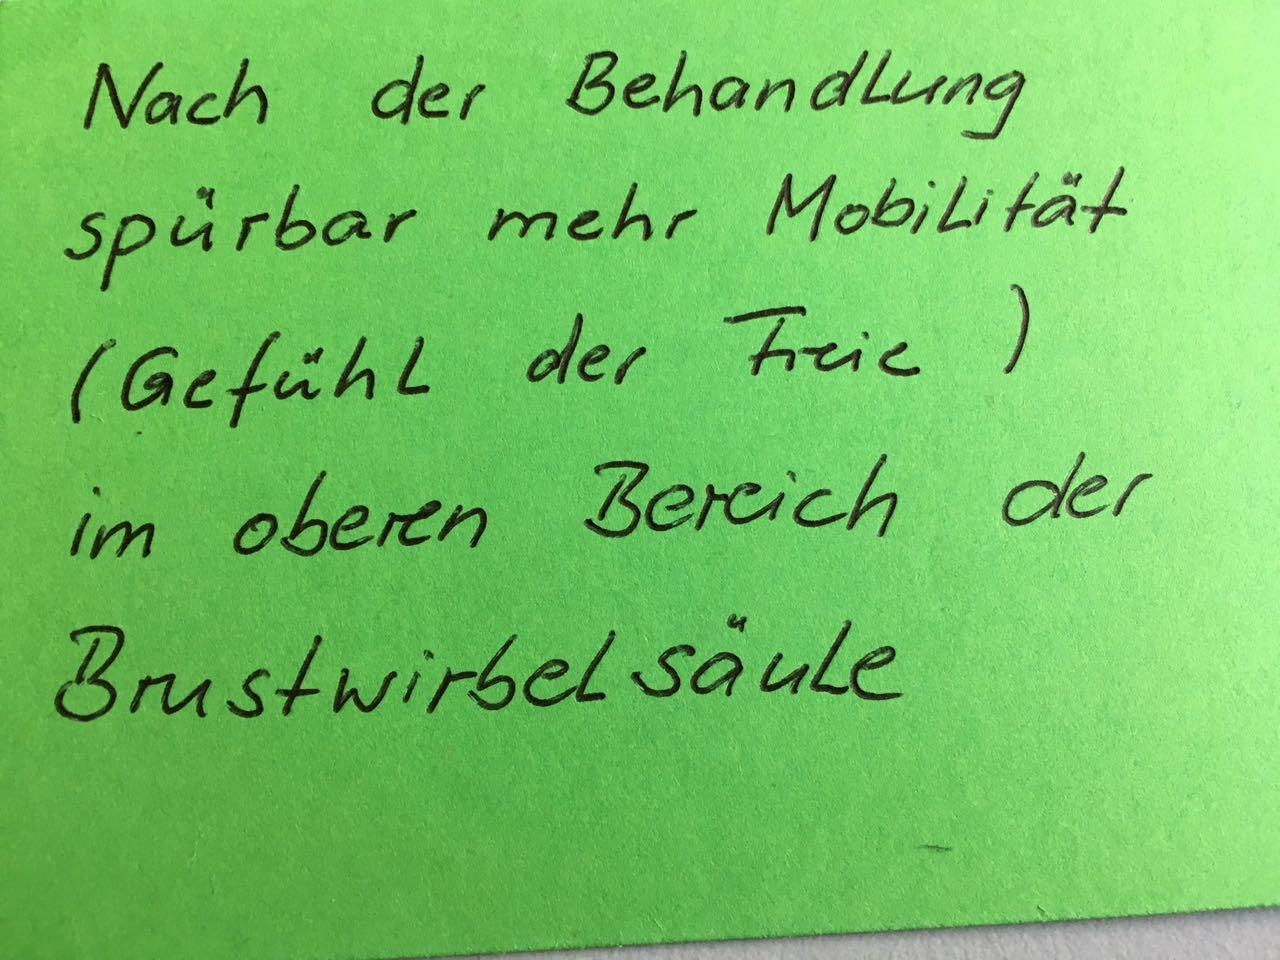 Nach der Behandlung
spürbar mehr Mobilität
(Gefühl der Freie )
im oberen Bereich der
Brustwirbelsäule